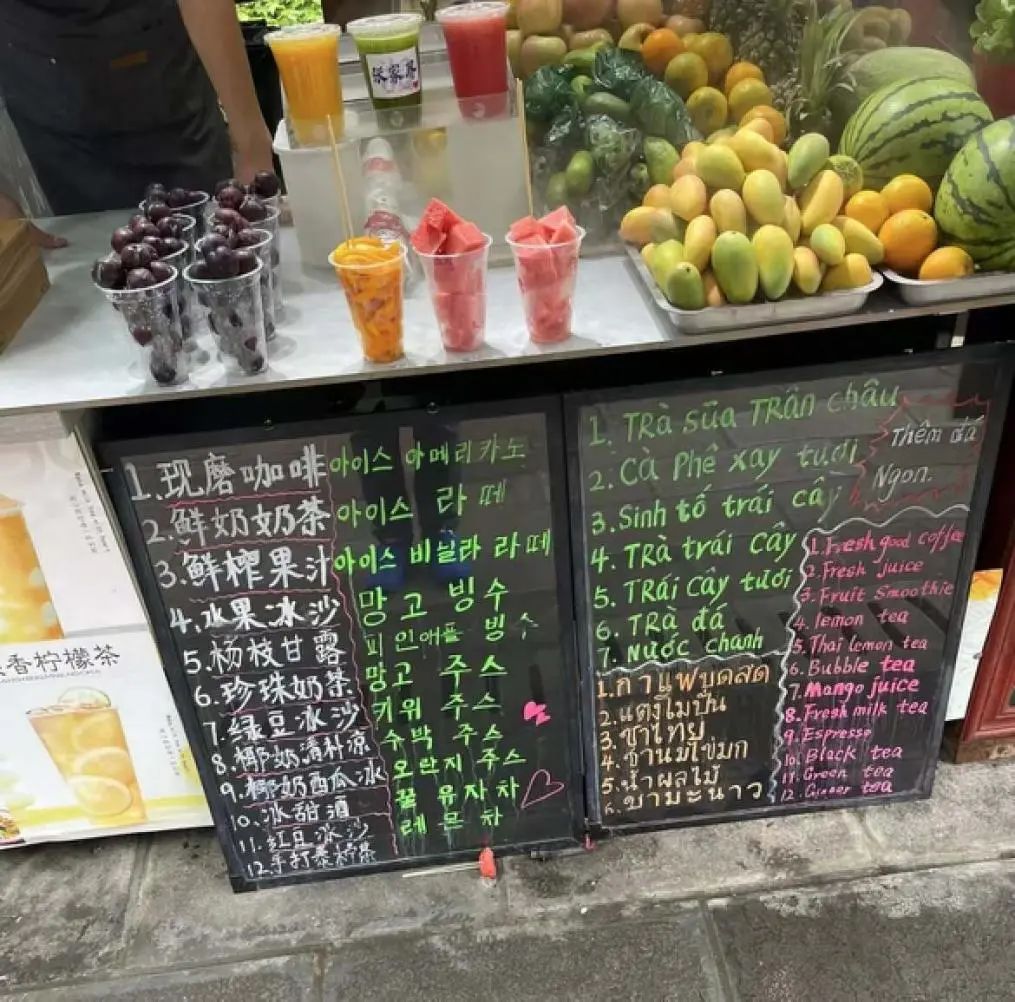 1.现磨咖啡
2.鲜奶奶茶
3.鲜榨果汁
4.水果冰沙
5.杨枝甘露
6.珍珠奶茶
7.绿豆冰沙
8.椰奶清朴凉
9.椰奶西瓜冰
10.冰甜酒
11.红豆冰沙
12.手打柠檬茶
아이스 아메리카노
아이스 라떼
아이스 비닐라 라떼
망고 빙수
피인애플 빙수
망고 주스
키위 주스
수박 주스
오란지 주스
꿀 유자차
레몬차
1. TRà sũa TRân châu
2. Cà Phê xay tươi
3. Sinh tố trái cây
4. TRà trái cây
5. TRái cây tươi
6. TRà đá
7. Nước chanh
Thêm đá
Ngon.
1.กาแฟบูดสด
2.แตงโมปั่น
3.ชาไทย
4.ชานมไข่มุก
5.น้ำผลไม้
6.ชามะนาว
1. Fresh good coffee
2. Fresh juice
3. Fruit Smoothie
4. lemon tea
5. Thai lemon tea
6. Bubble tea
7. Mango juice
8. Fresh milk tea
9. Espresso
10. Black tea
11. Green tea
12. Ginger tea
香柠檬茶